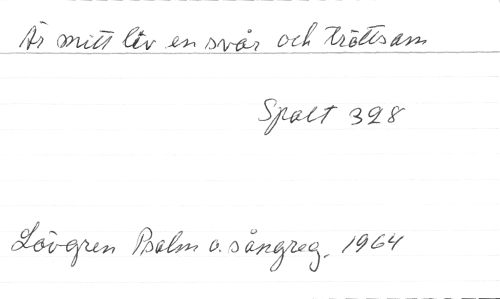 Är mitt liv en svår och tröttsam
Spalt 328
Lövgren Psalm o. sångreg. 1964